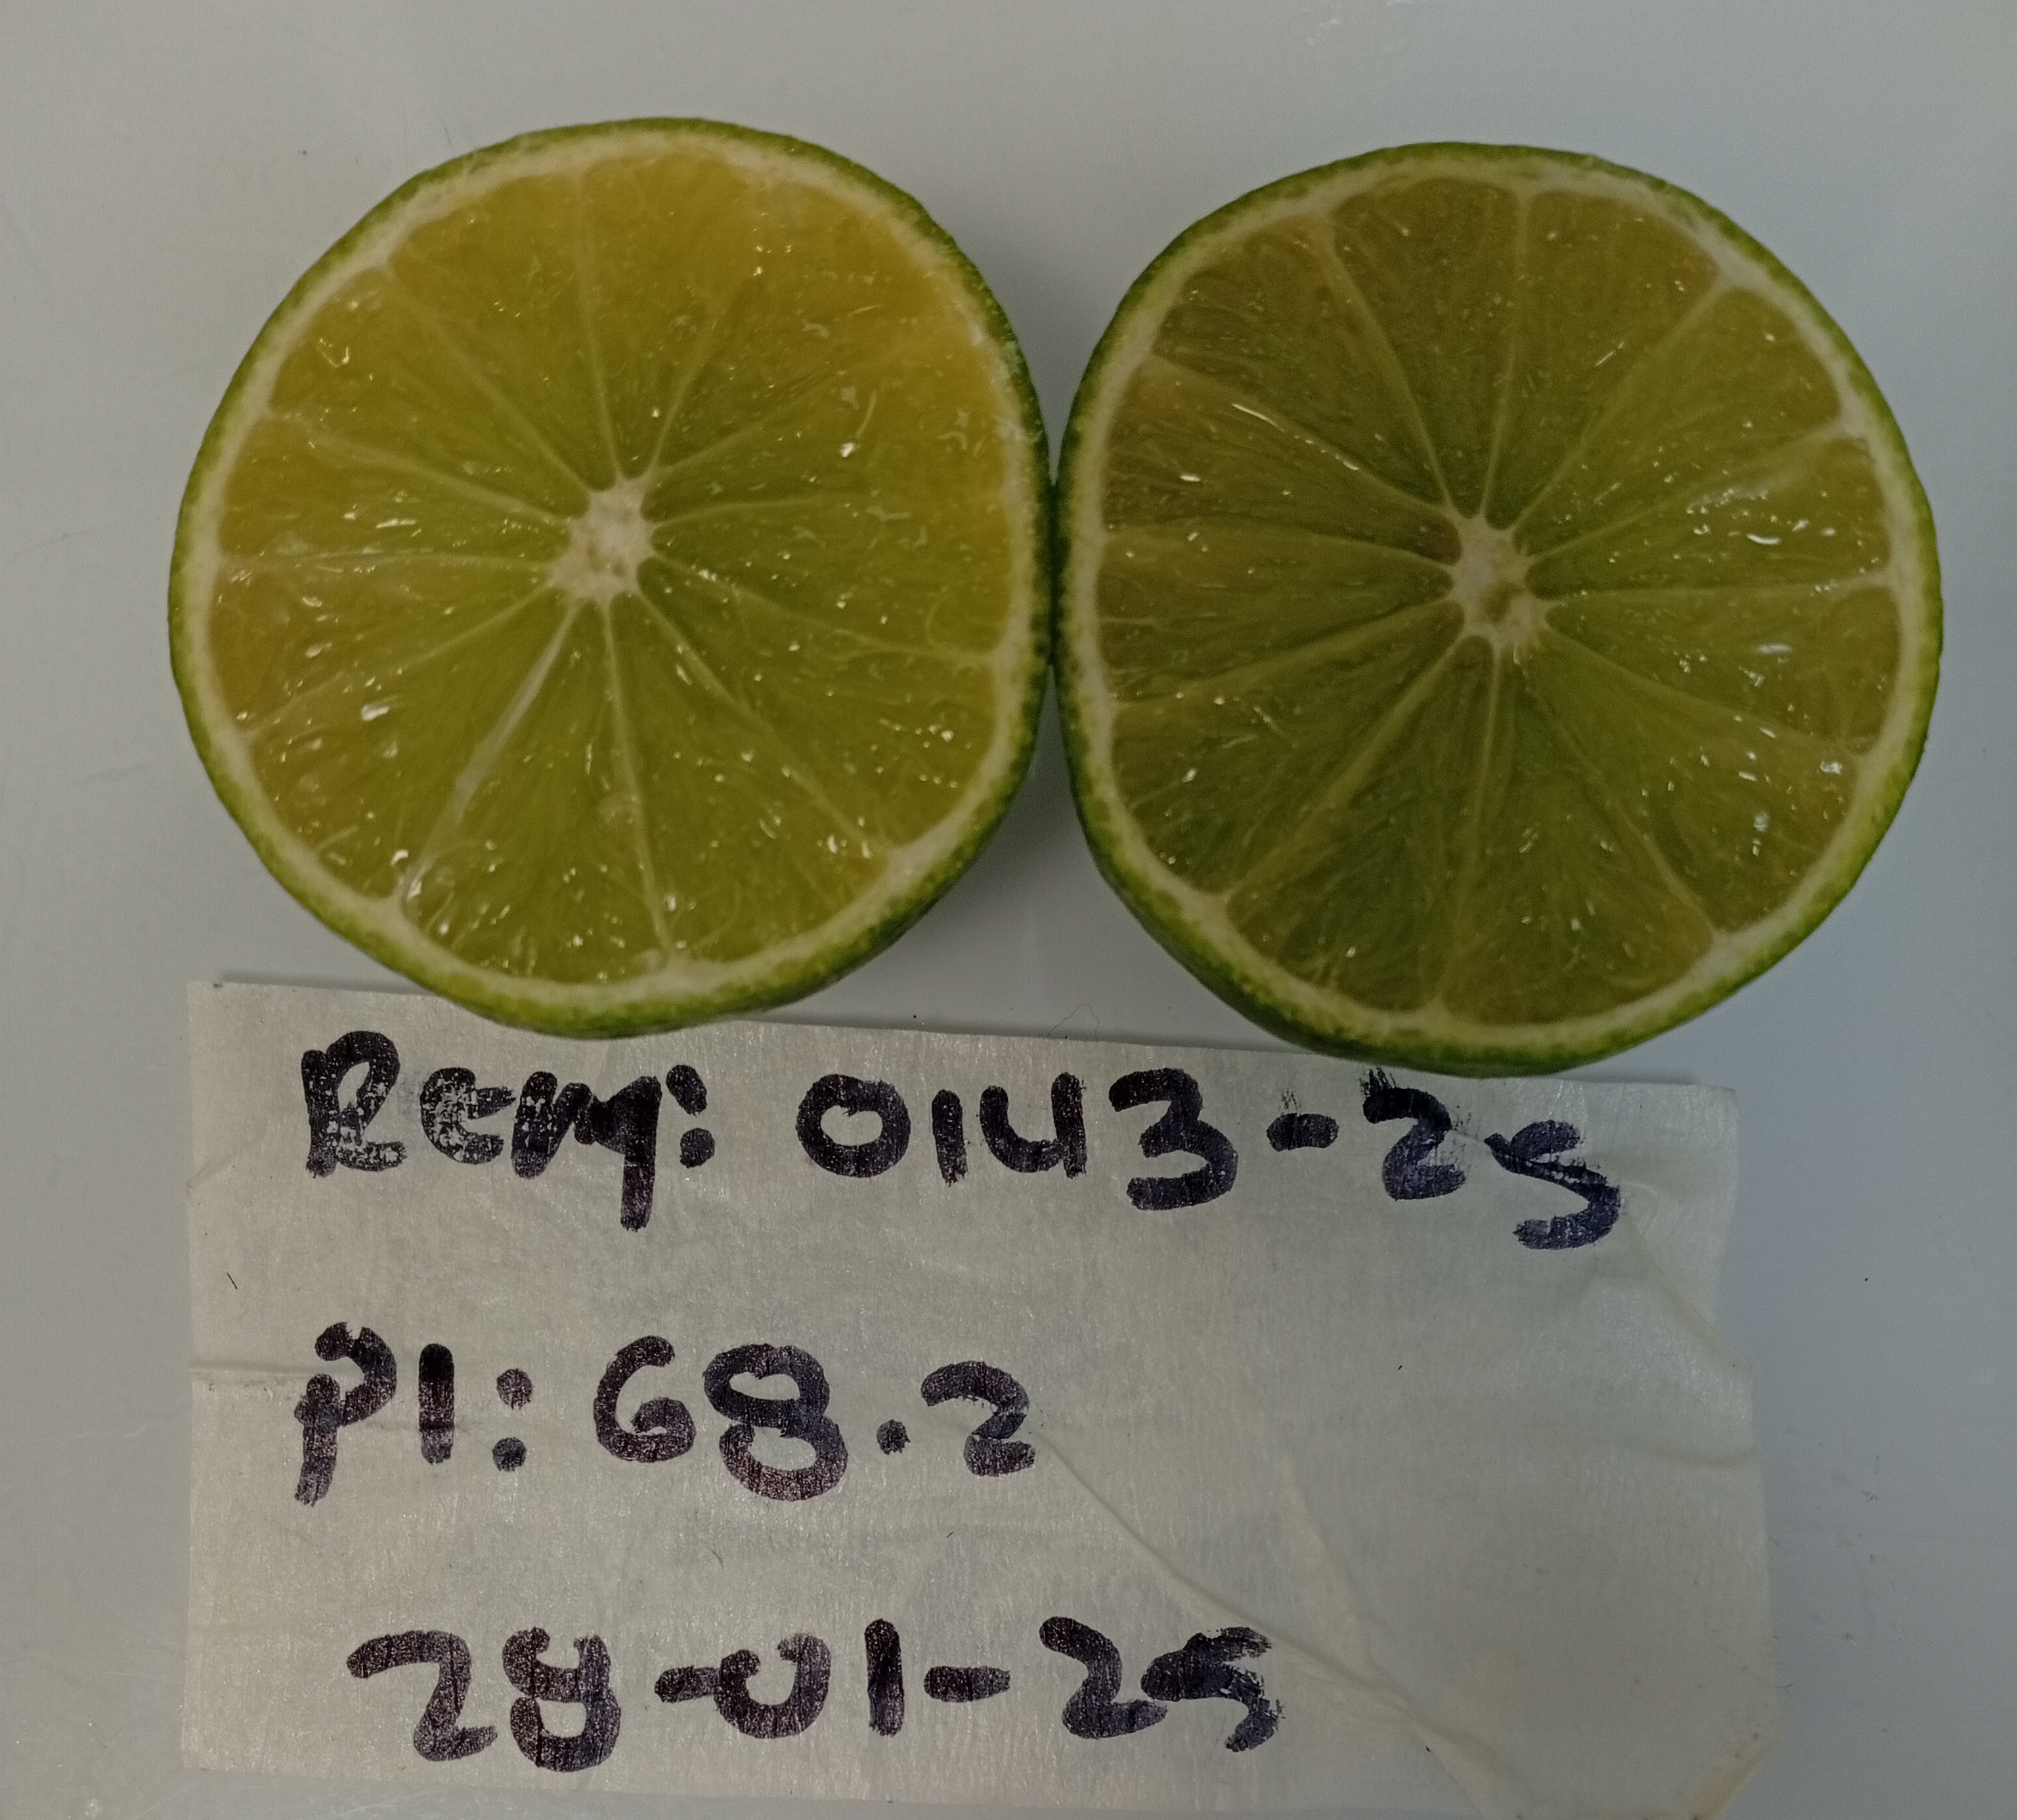 Rem: 0143-25
PI: 68.2
28-01-25